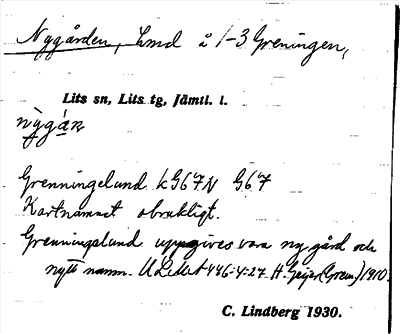 Nygården, Lmd å 1-3 Greningen,
Lits sn, Lits tg, Jämtl. l.
nỳgá̱n
Grenningelund kG67N G67
Kartnamnet obrukligt.
Grenningslund uppgives vara ny gård och
nytt namn. ULMA 446:4:27 H. Geijer (Gren.) 1910.
C. Lindberg 1930.